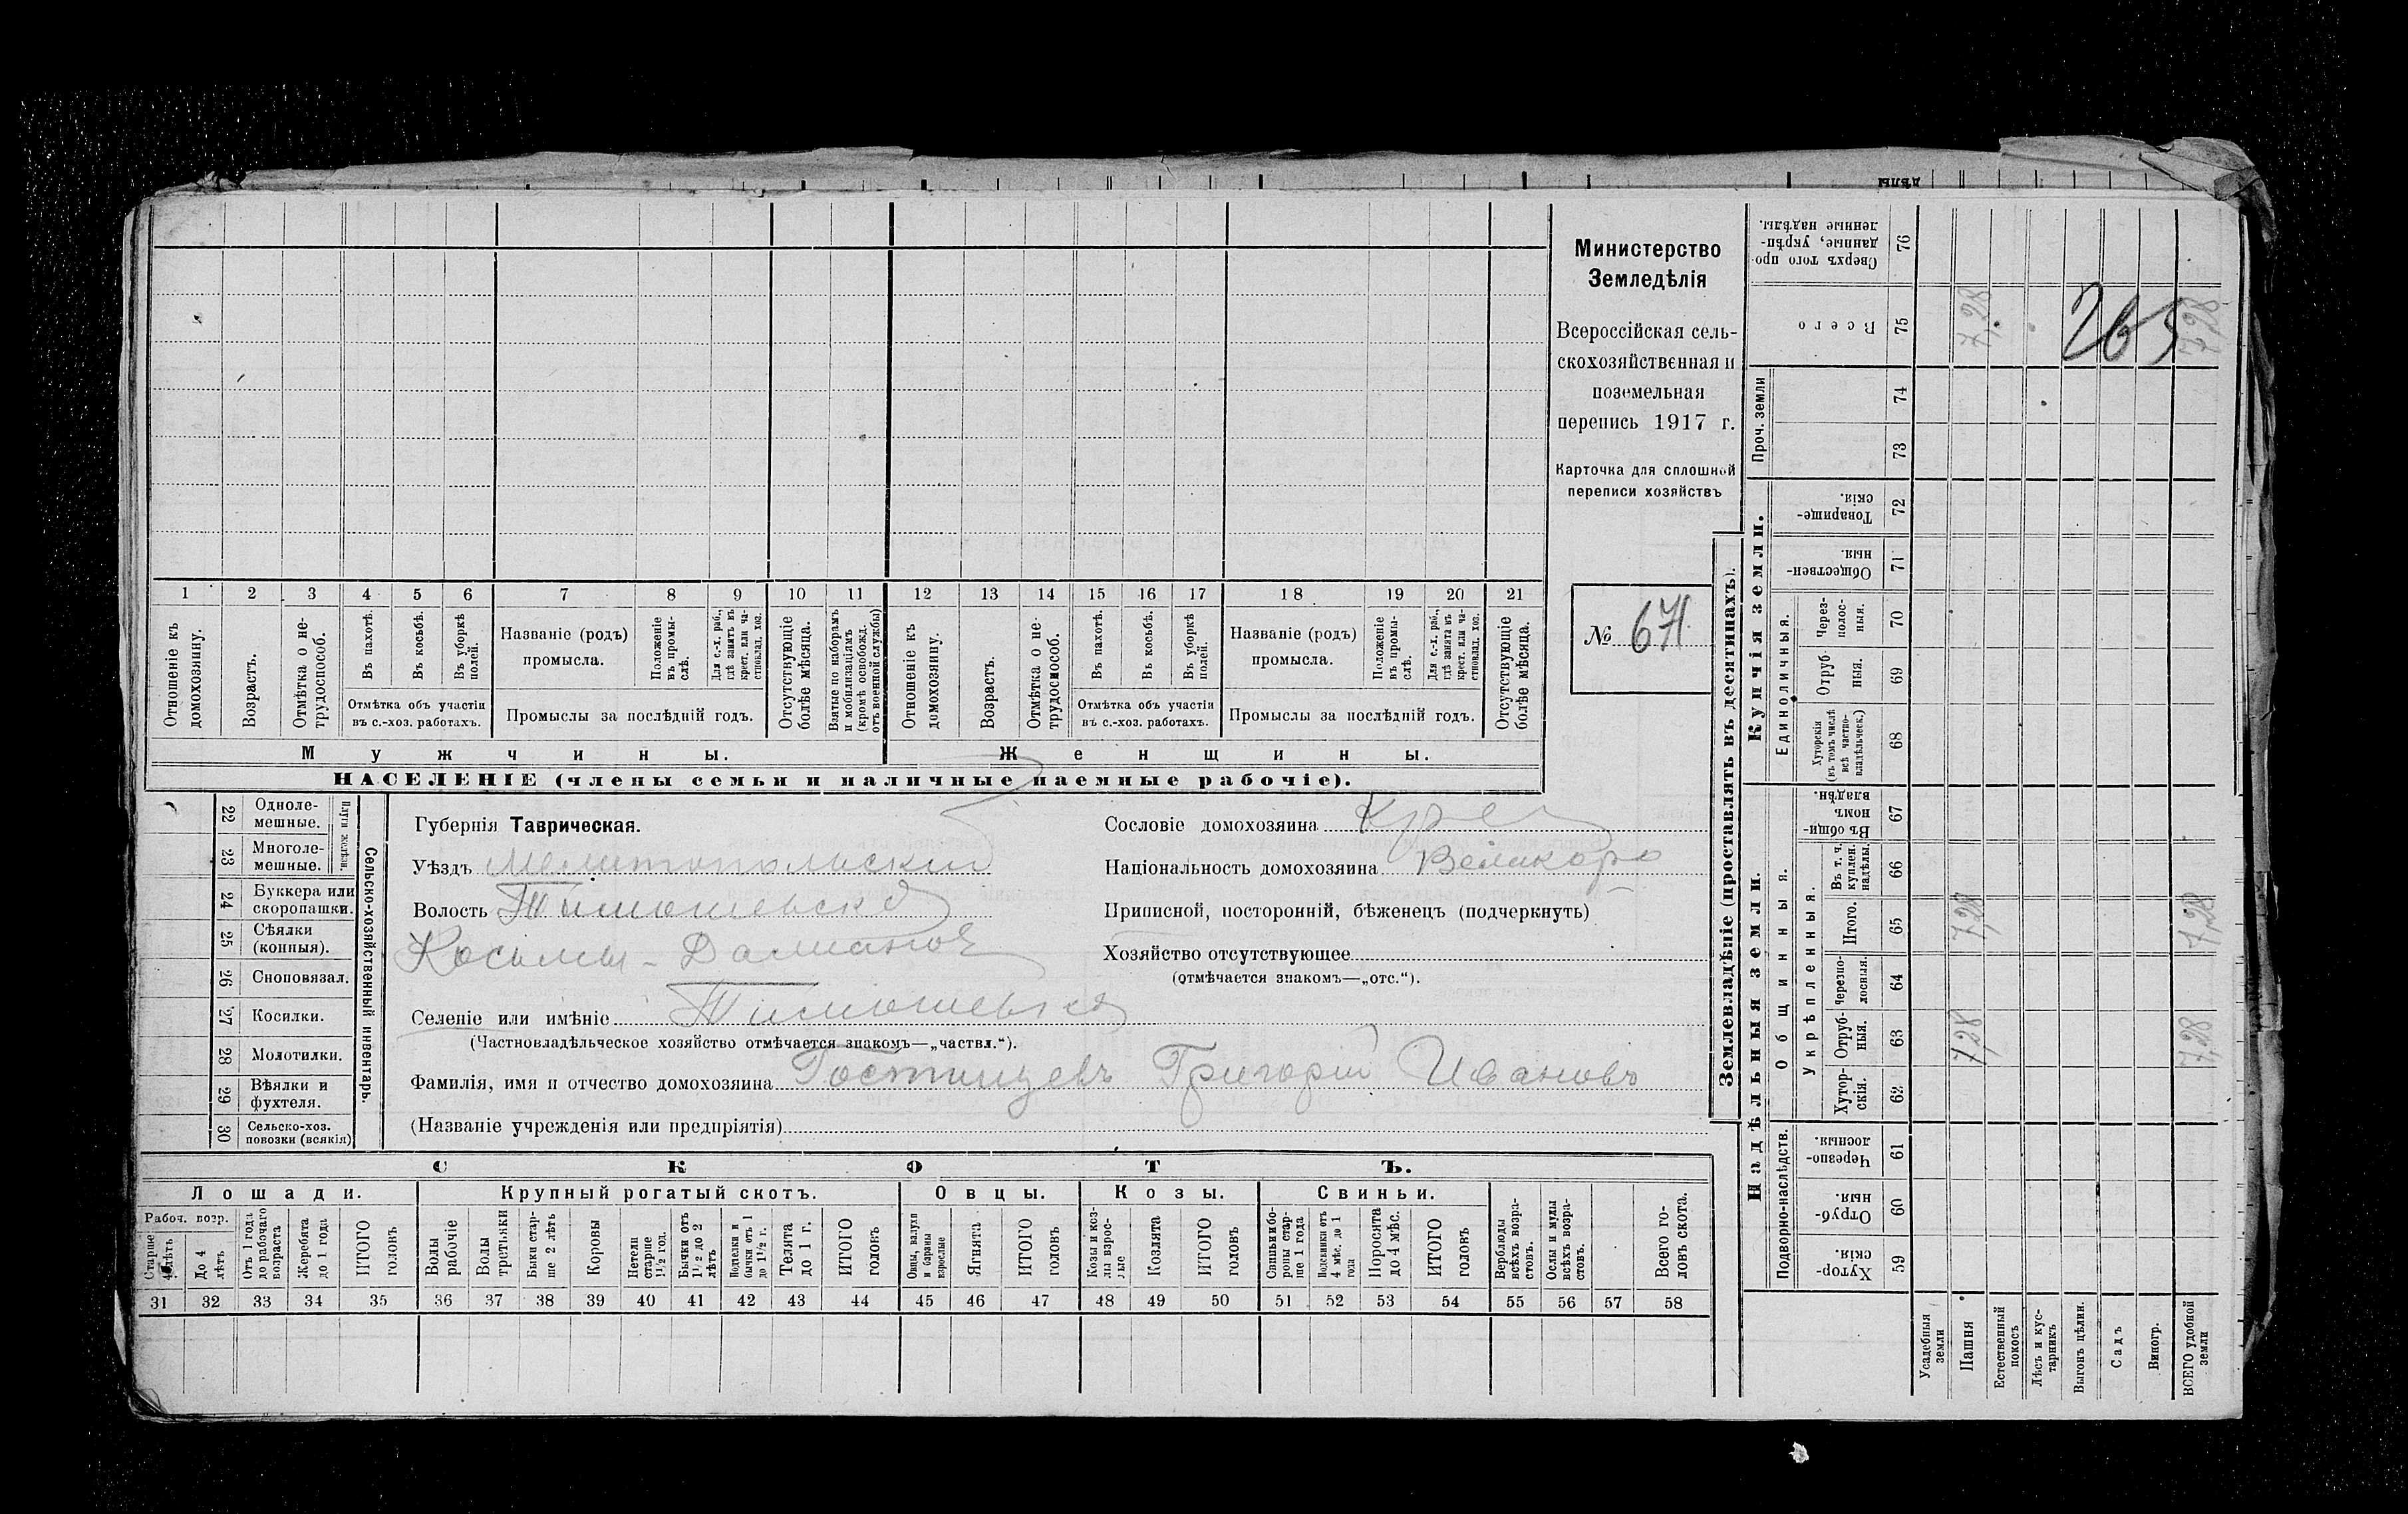 дѣлы
1 2 3 4 5 6 7 8 9 10 11 12 13 14 15 16 17 18 19 20 21
Отношеніе къ домохозяину.
Возрастъ.
Отмѣтка о не-
трудоспособ.
Въ пахотѣ.
Въ косьбѣ.
Въ уборкѣ
полей.
Отмѣтка объ участіи
въ с.-хоз. работахъ.
Названіе (родъ)
промысла.
Положеніе
въ промы-
слѣ.
Для с.-х. раб.,
гдѣ занятъ въ
крест. или ча-
стновлад. хоз.
Промыслы за послѣдній годъ.
Отсутствующіе
болѣе мѣсяца.
Взятые по наборамъ
и мобилизаціямъ
(кромѣ освобожд.
отъ военной службы)
Отношеніе къ
домохозяину.
Возрастъ.
Отмѣтка о не-
трудоспособ.
Въ пахотѣ.
Въ косьбѣ.
Въ уборкѣ
полей.
Отмѣтка объ участіи
въ с.-хоз. работахъ.
Названіе (родъ)
промысла.
Положеніе
въ промы-
слѣ.
Для с.-х. раб.,
гдѣ занята въ
крест. или ча-
стновлад. хоз.
Промыслы за послѣдній годъ.
Отсутствующіе
болѣе мѣсяца.
Мужчины.
Женщины.
НАСЕЛЕНІЕ (члены семьи и наличные наемные рабочіе).
Министерство
Земледѣлія
Всероссійская сель-
скохозяйственная и
поземельная
перепись 1917 г.
Карточка для сплошной
переписи хозяйствъ
№ 671
22 Одноле-
мешные.
23 Многоле-
мешные.
Плуги желѣзн.
24 Буккера или
скоропашки.
25 Сѣялки
(конныя).
26 Сноповязал.
27 Косилки.
28 Молотилки.
29 Вѣялки и
фухтеля.
30 Сельско-хоз.
повозки (всякія)
Сельско-хозяйственный инвентарь.
Губернія Таврическая.
Уѣздъ Мелитопольскій
Волость Тимошевска
Косьмы-Даміанов
Селеніе или имѣніе Тимошевка
(Частновладѣльческое хозяйство отмѣчается знакомъ—„частвл.“).
Фамилія, имя и отчество домохозяина Гостищевъ Григорій Ивановъ
(Названіе учрежденія или предпріятія)
Сословіе домохозяина Крес
Національность домохозяина Великоро
Приписной, посторонній, бѣженецъ (подчеркнуть)
Хозяйство отсутствующее
(отмѣчается знакомъ—„отс.“).
СКОТЪ.
Лошади. Крупный рогатый скотъ. Овцы. Козы. Свиньи.
Рабоч. возр.
Старше
4 лѣтъ
До 4
лѣтъ
Отъ 1 года
до рабочаго
возраста
Жеребята
до 1 года
ИТОГО
головъ
Волы
рабочіе
Волы
третьяки
Быки стар-
ше 2 лѣтъ
Коровы
Нетели
старше
1½ год.
Бычки отъ
1½ до 2
лѣтъ
Подтелки и
бычки отъ 1
до 1½ г.
Телята
до 1 г.
ИТОГО
головъ
Овцы, валухи
и бараны
взрослые
Ягнята
ИТОГО
головъ
Козы и коз-
лы взрос-
лые
Козлята
ИТОГО
головъ
Свиньи и бо-
ровы стар-
ше 1 года
Подсвинки отъ
4 мѣс. до 1
года
Поросята
до 4 мѣс.
ИТОГО
головъ
Верблюды
всѣхъ возра-
стовъ.
Ослы и мулы
всѣхъ возра-
стовъ.
Всего го-
ловъ скота.
31 32 33 34 35 36 37 38 39 40 41 42 43 44 45 46 47 48 49 50 51 52 53 54 55 56 57 58
Землевладѣніе (проставлять въ десятинахъ).
Надѣльныя земли.
Купчія земли.
Проч. земли
Подворно-наслѣдств.
Общинныя.
Укрѣпленныя.
Единоличныя.
Сверхъ того про-
данные, укрѣп-
ленные надѣлы.
76
Всего
75
7,28
265
7,28
74
73
Товарище-
скія.
72
Обществен-
ныя.
71
Через-
полос-
ныя.
70
Отруб-
ныя.
69
Хуторскія
(въ томъ числѣ
всѣ частно-
владѣльческ.)
68
Въ общин-
номъ
владѣн.
67
Въ т. ч.
куплен.
надѣлы.
66
Итого.
65
7,28
7,28
Черезпо-
лосныя.
64
Отруб-
ныя.
63
7,28
7,28
Хутор-
скія.
62
Черезпо-
лосныя.
61
Отруб-
ныя.
60
Хутор-
скія.
59
Усадебныя
земли
Пашня
Естественный
покосъ
Лѣсъ и кус-
тарникъ
Выгонъ цѣлин.
Садъ
Виногр.
ВСЕГО удобной
земли